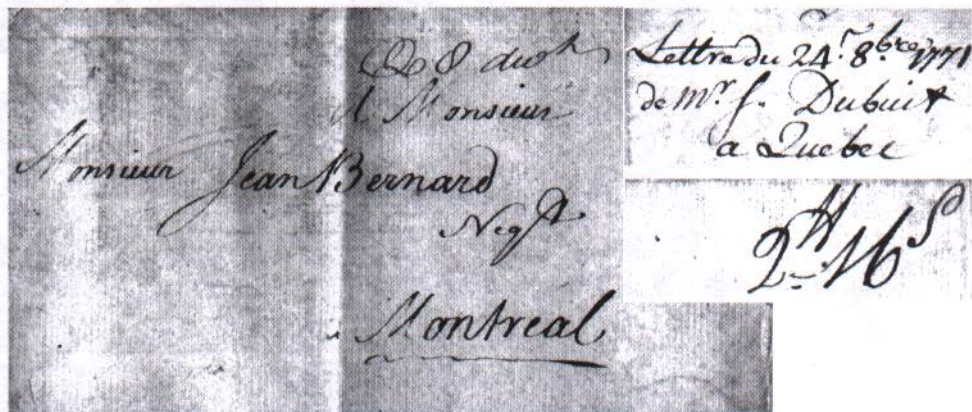 Q 8 dwt
A Monsieur
Monsieur Jean Bernard
Negt
Montreal
Lettre du 24.r 8.bre 1771
de Mr. f. Dubuis
a Quebec
2H 16S